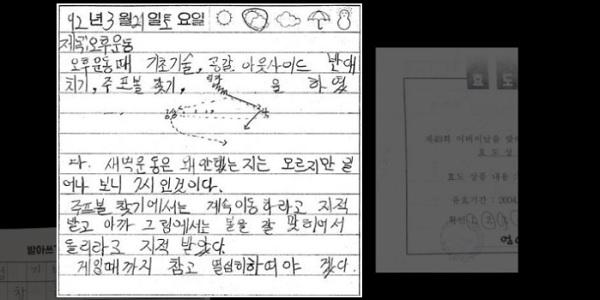 92년 3월 21일 토요일
제목:오후운동
오후운동때 기초기술, 공갈 아웃사이드 반대
치기, 주프볼 찾기, 을 하였
다. 새벽운동은 왜안했는지는 모르지만 일
어나 보니 7시 인것이다.
주프볼 찾기에서는 계속이동하라고 지적
받고 아까 그림에서는 볼을 잘 맞히어서
돌리라고 지적 받았다
게임때까지 참고 열심히하여야 겠다.
받아쓰기
효도
제49회 어버이날을 맞
효도상
효도 상품 내용 :
유효기간 : 2004.
확인